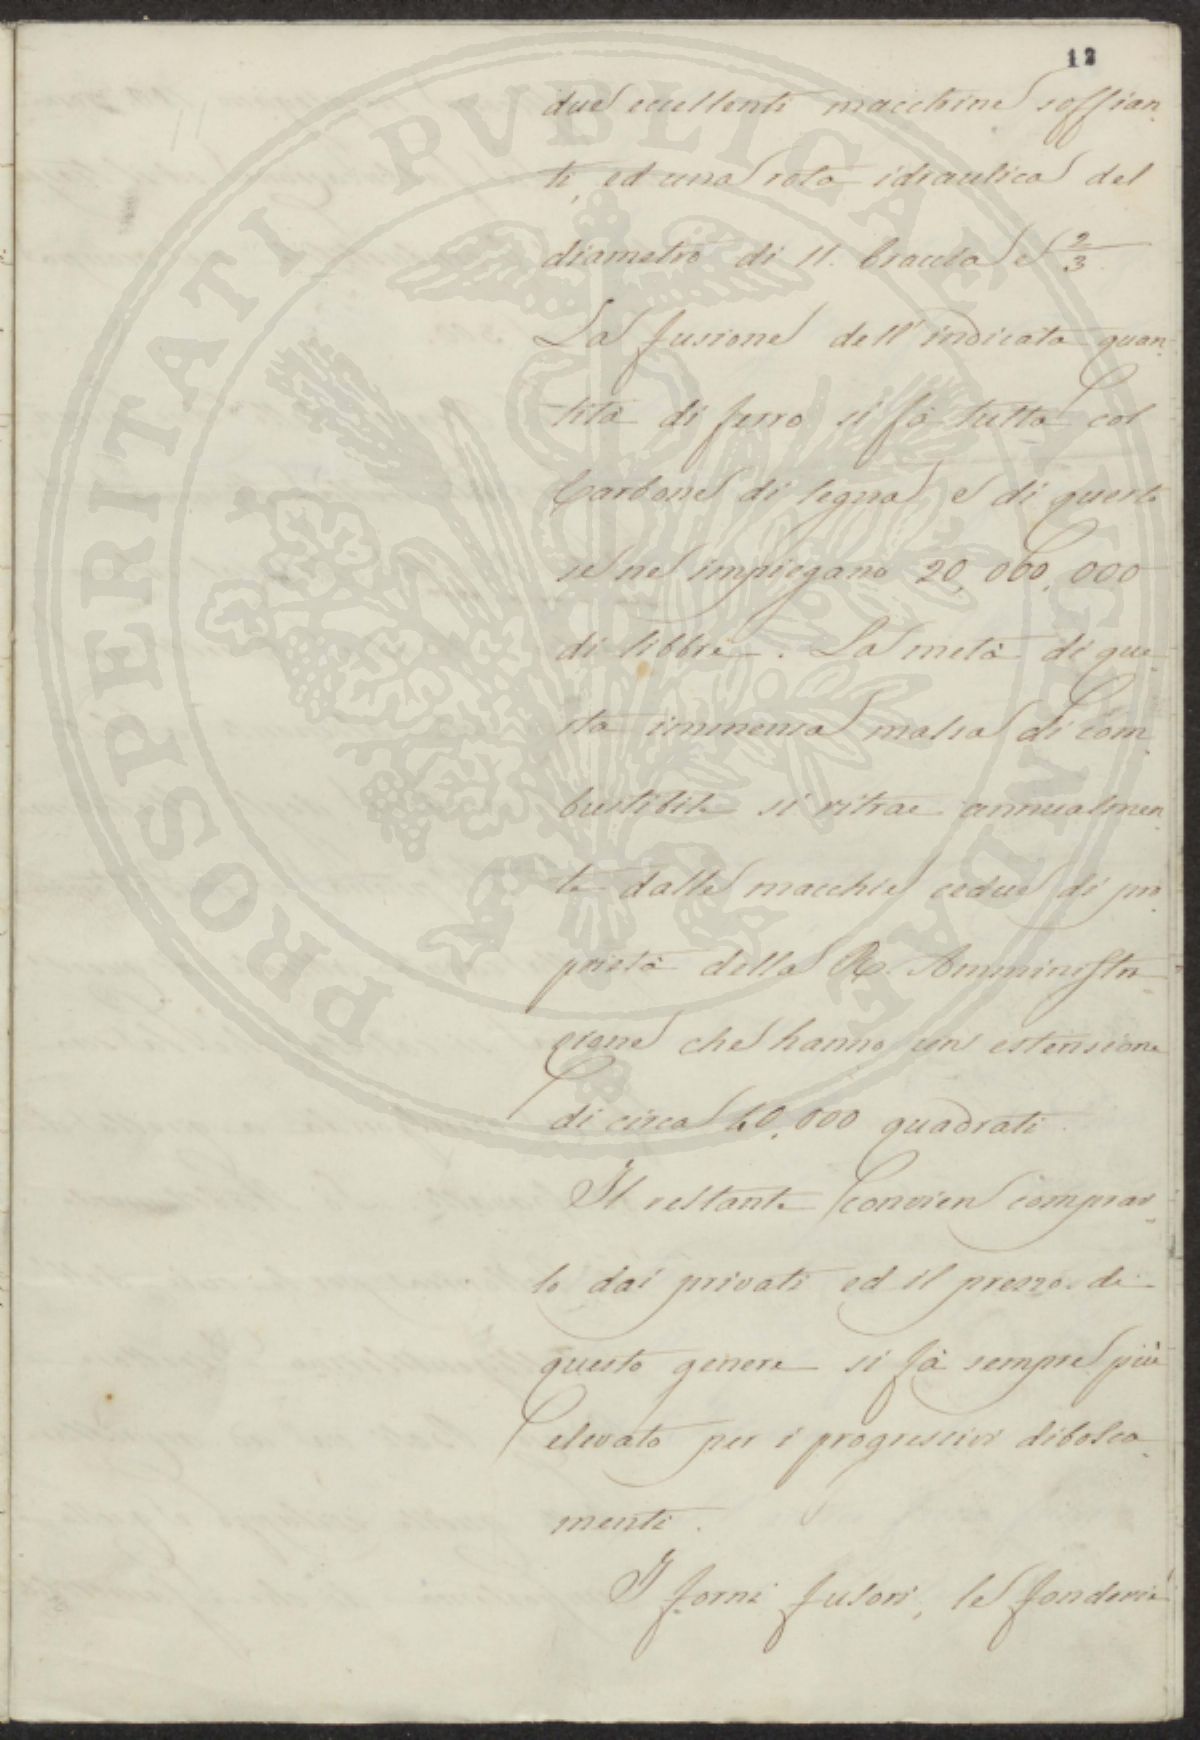 12
due eccellenti macchine soffian-
ti, ed una rota idraulica del
diametro di 11. braccia e 2/3.
La fusione dell'indicata quan-
tità di ferro si fà tutta col
Carbone di legna e di questo
se ne impiegano 20,000,000
di libbre. La metà di que-
sta immensa massa di com-
bustibile si ritrae annualmen-
te dalle macchie cedue di pro-
prietà della R. Amministra-
zione che hanno un estensione
di circa 40,000 quadrati.
Il restante convien comprar-
lo dai privati ed il prezzo di
questo genere si fà sempre più
elevato per i progressivi disbosca-
menti.
I forni fusori, le fonderie
PROSPERITATI PVBLICAE AVGENDAE